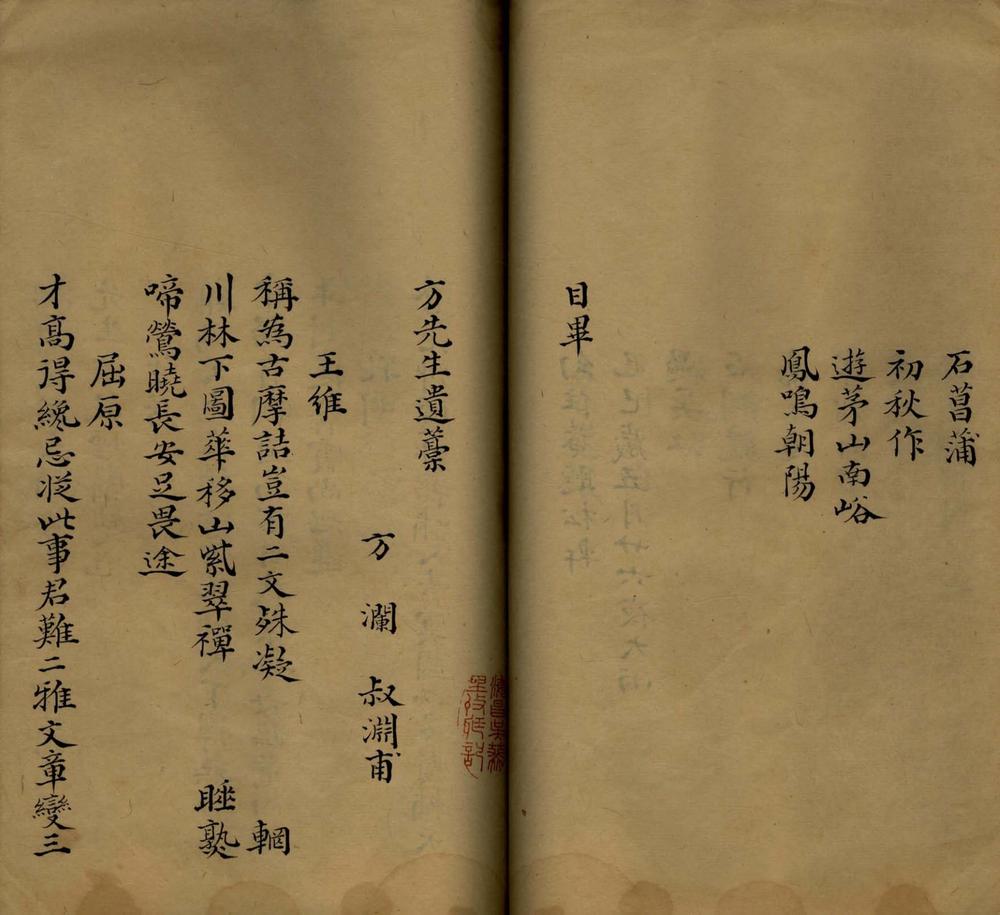 石菖蒲
初秋作
遊茅山南峪
鳳鳴朝陽
目畢
方先生遺藁
方瀾叔淵甫
王維
稱為古摩詰豈有二文殊凝 輞
川林下圖華移山紫翠禪 睡熟
啼鶯曉長安足畏途
屈原
才高得纔忌從此事君難二雅文章變三